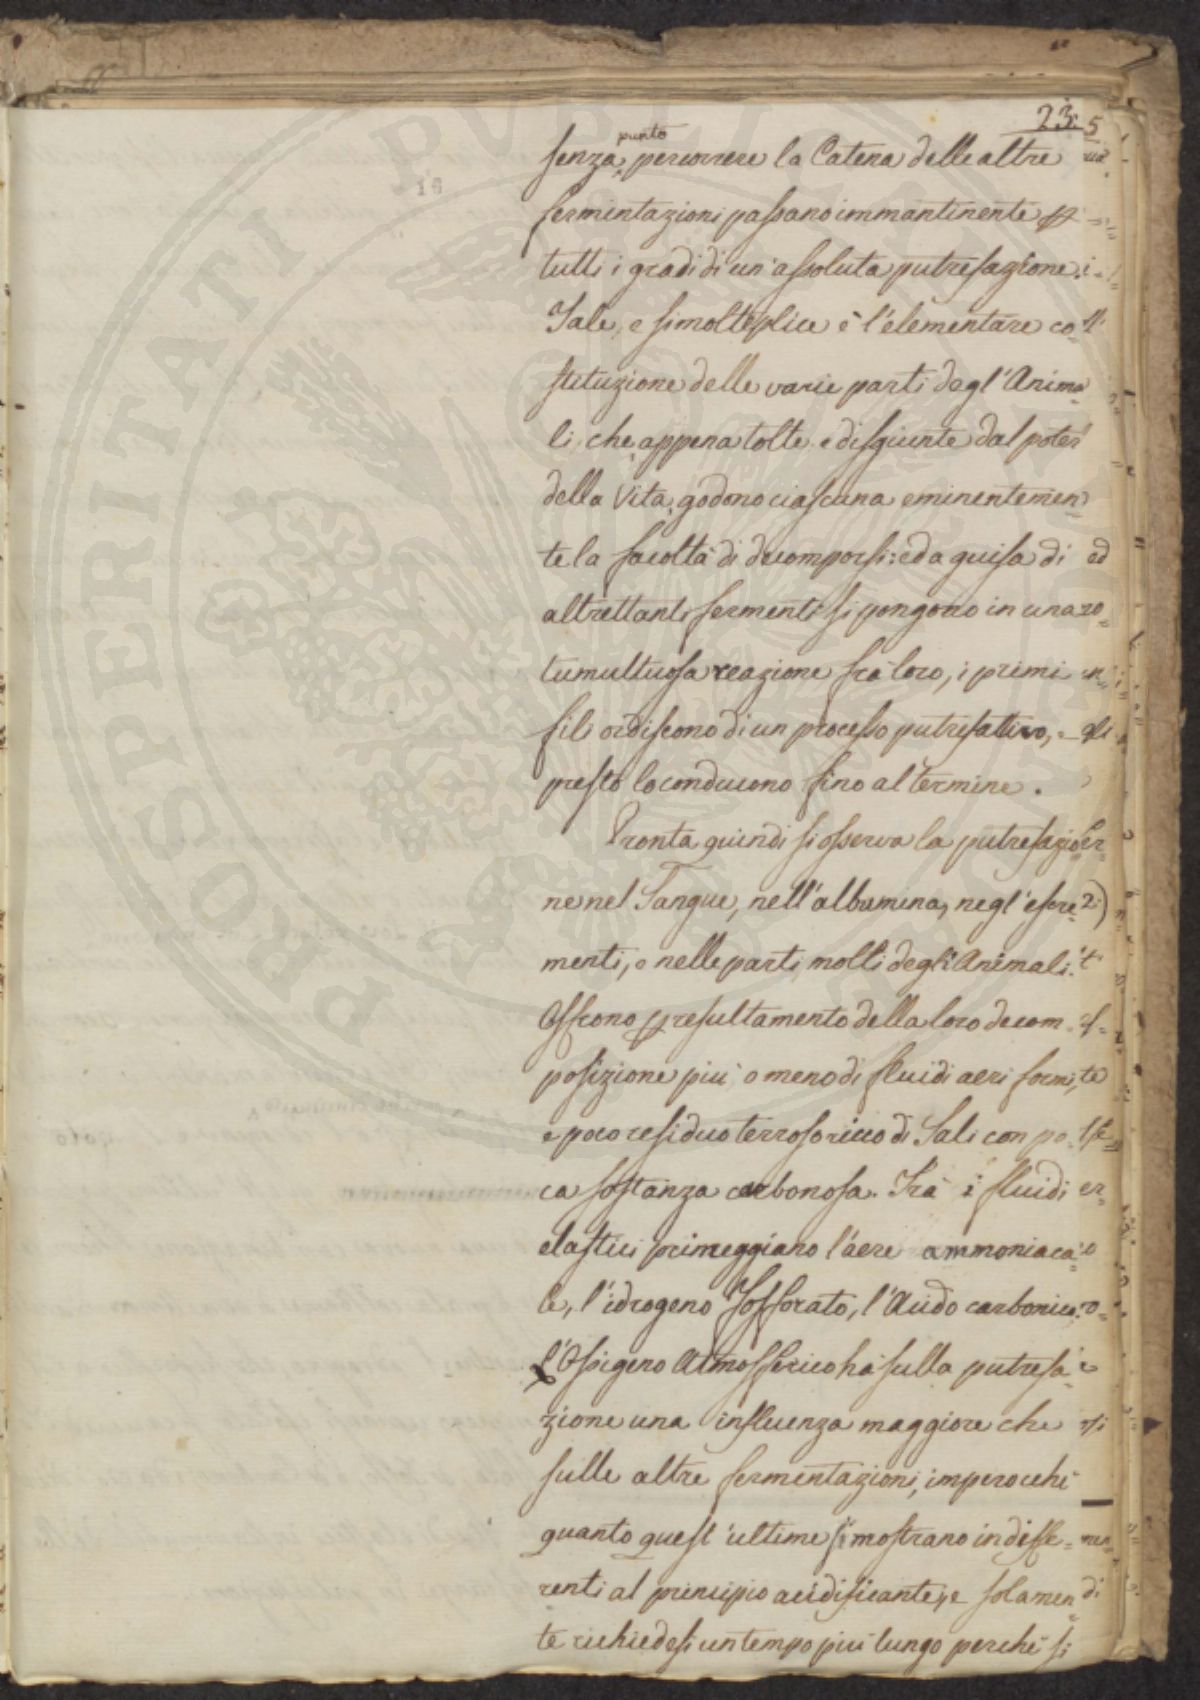 23.
punto
senza percorrere la Catena delle altre
fermintazioni passano immantinente p
tutti i gradi di un'assoluta putrefazione.
Tale, e si molteplice è l'elementare co=
stituzione delle varie parti degl'Anima=
li, che appena tolte, e disgiunte dal poter
della Vita, godono ciascuna eminentemen=
te la facoltà di decomporsi: ed a guisa di
altrettanti fermenti si pongono in una
tumultuosa reazione frà loro, i primi
fili ordiscono di un processo putrefattivo, e
presto lo conducono fino al termine.
Pronta quindi si osserva la putrefazio=
ne nel Sangue, nell'albumina, negl'escre=
menti, o nelle parti molli degli Animali.
Offrono p resultamento della loro decom=
posizione più, o meno di fluidi aeri formi,
e poco residuo terroso ricco di Sali con po=
ca sostanza carbonosa. Frà i fluidi
elastici primeggiano l'aere ammoniaca=
le, l'idrogeno fosforato, l'Acido carbonico.
L'Ossigeno Atmosferico hà sulla putrefa=
zione una influenza maggiore che
sulle altre fermentazioni, imperocchè
quanto quest'ultime si mostrano indiffe=
renti al principio acidificante, e solamen=
te richiedesi un tempo più lungo perchè si
16
PUBLICAE PROSPERITATI